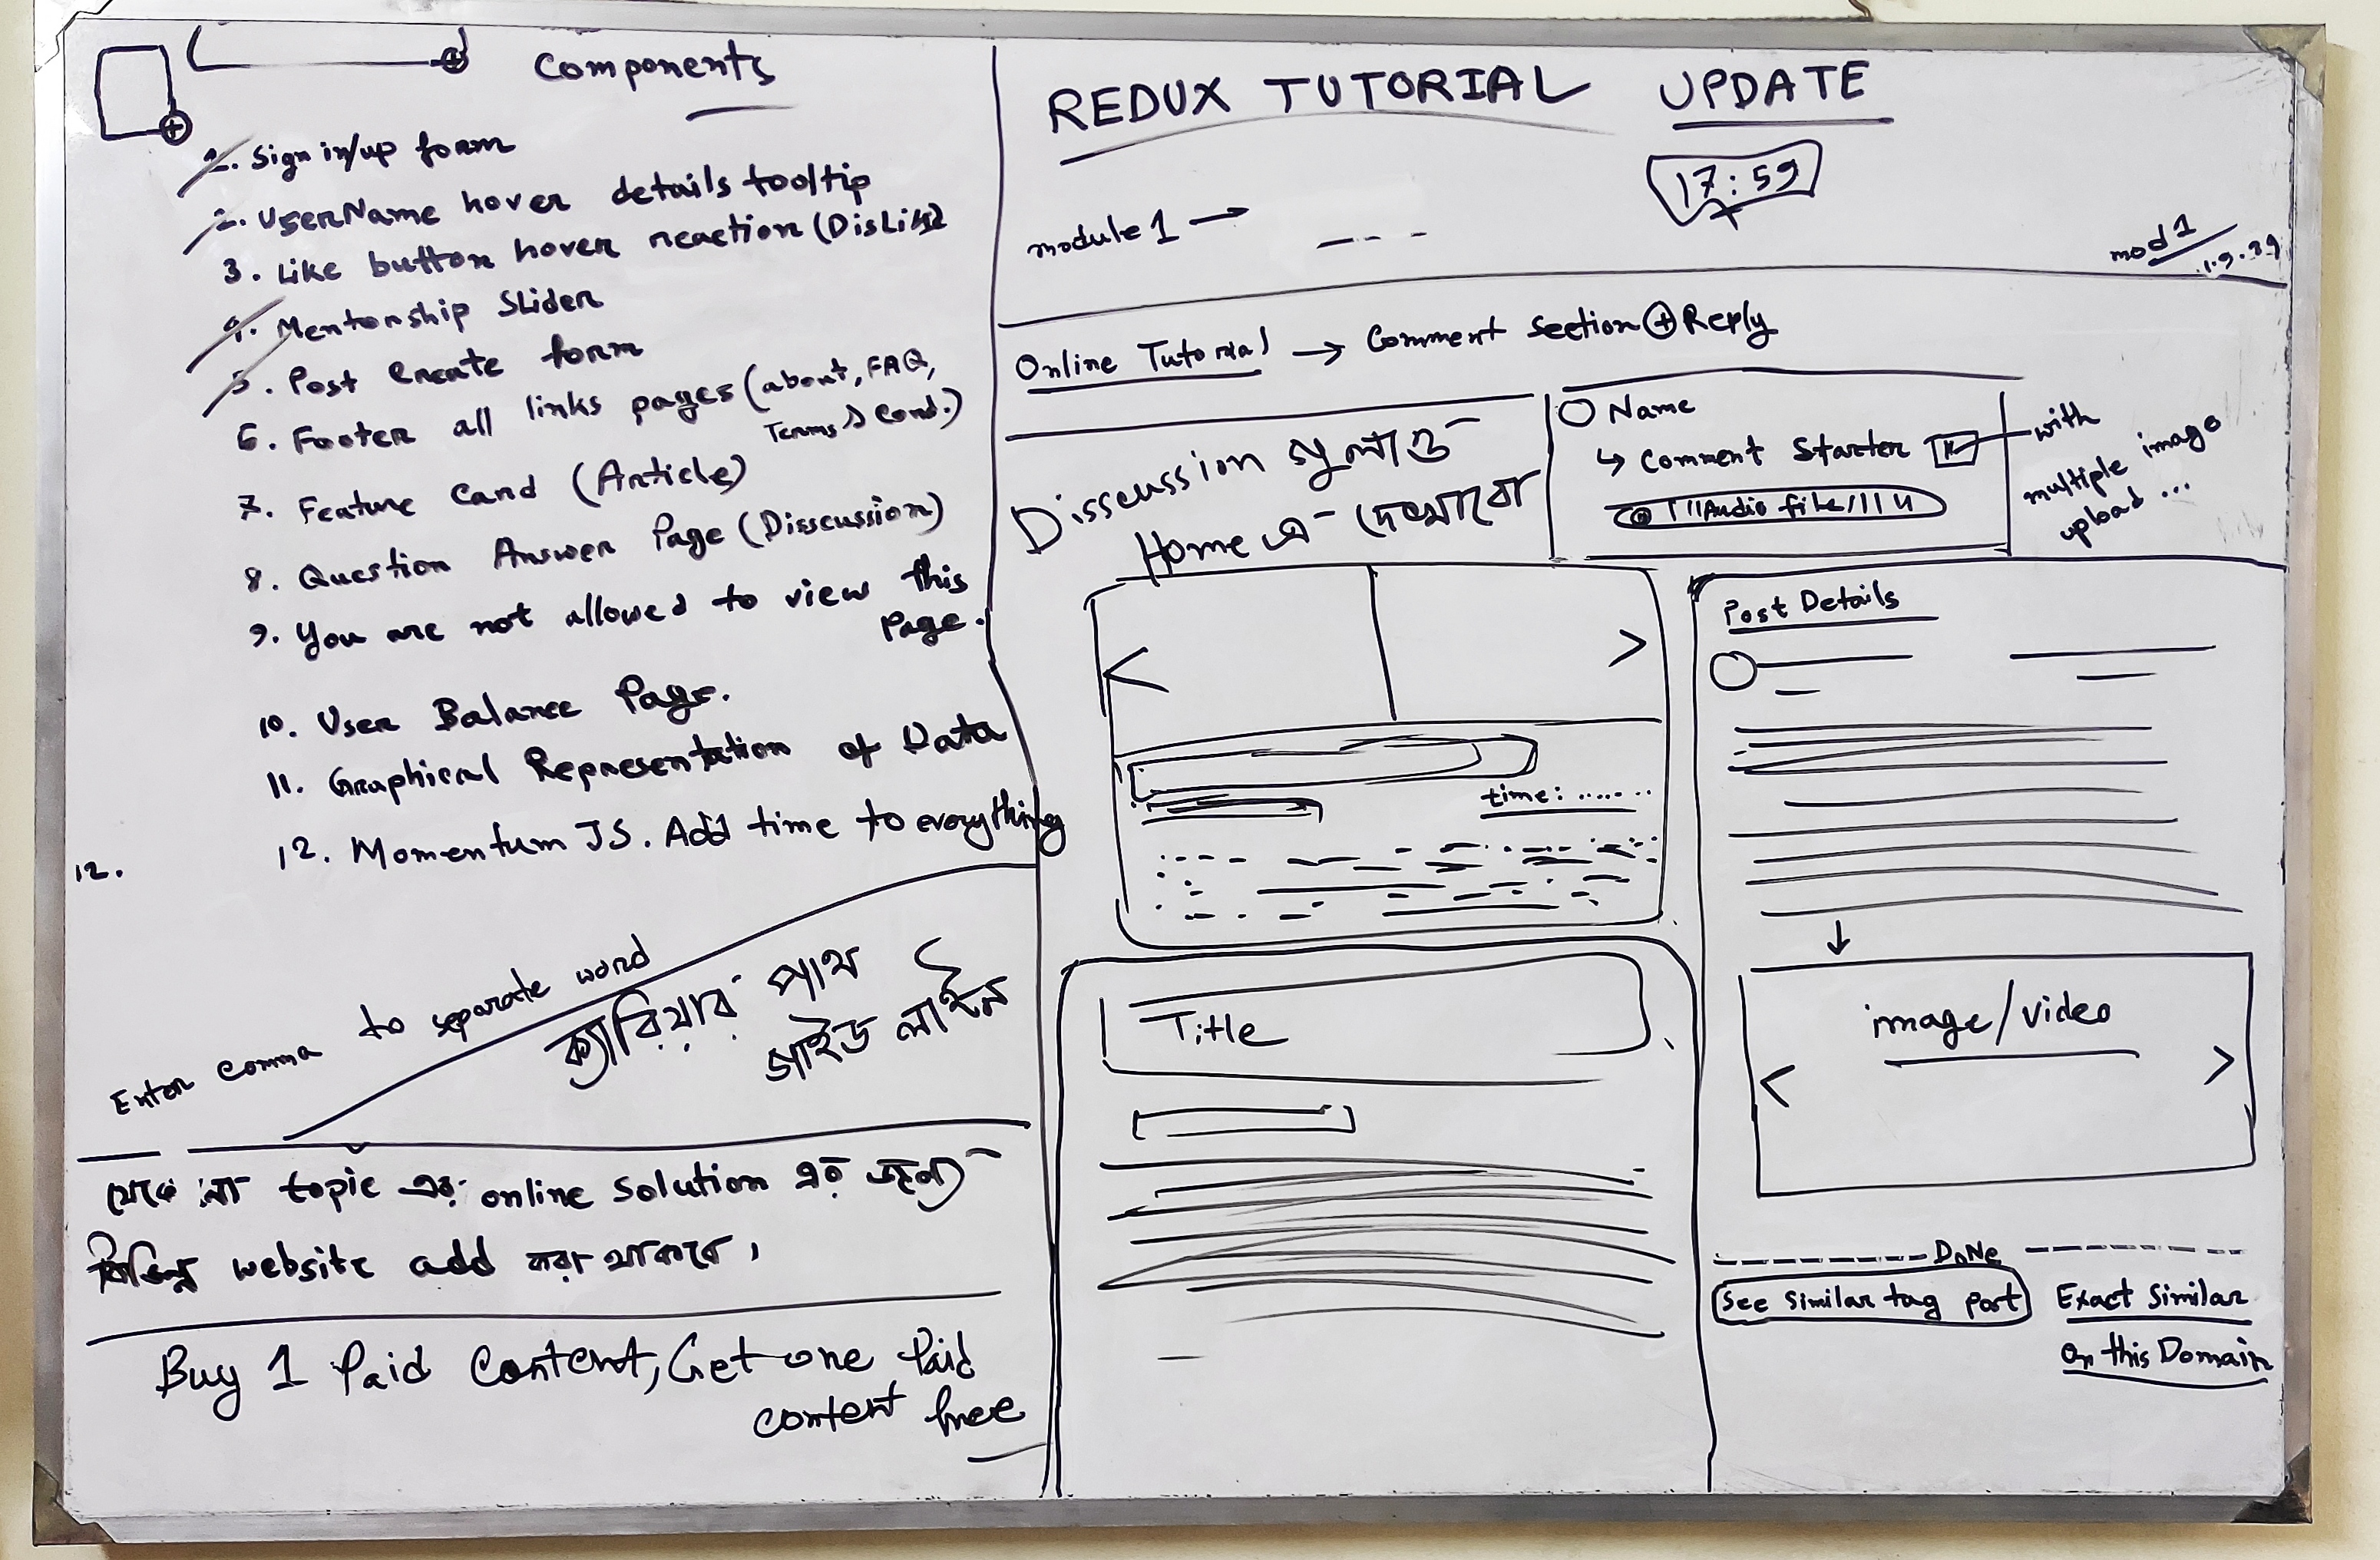 Components
1. Sign in/up form
2. UserName hover details tooltip
3. Like button hover reaction (DisLike)
4. Mentorship Slider
5. Post Create form
6. Footer all links pages (about, FAQ,
Terms & Cond.)
7. Feature Card (Article)
8. Question Answer Page (Disscussion)
9. You are not allowed to view this
Page.
10. User Balance Page.
11. Graphical Representation of Data
12. Momentum JS. Add time to everything
12.
Enter comma to separate word
ক্যারিয়ার পাথ
গাইড লাইন
যেকোনো topic এর online solution এর জন্য
বিভিন্ন website add করা থাকবে।
Buy 1 Paid Content, Get one Paid
content free
REDUX TUTORIAL UPDATE
17:59
module 1 →
mod 1
Online Tutorial → Comment Section + Reply
Disscussion গুলাও
Home এ দেখাবো
Name
↳ Comment Starter
Audio file
with
multiple image
upload ...
time: ......
Title
Post Details
image/video
< >
DoNe
See Similar tag post
Exact Similar
On this Domain